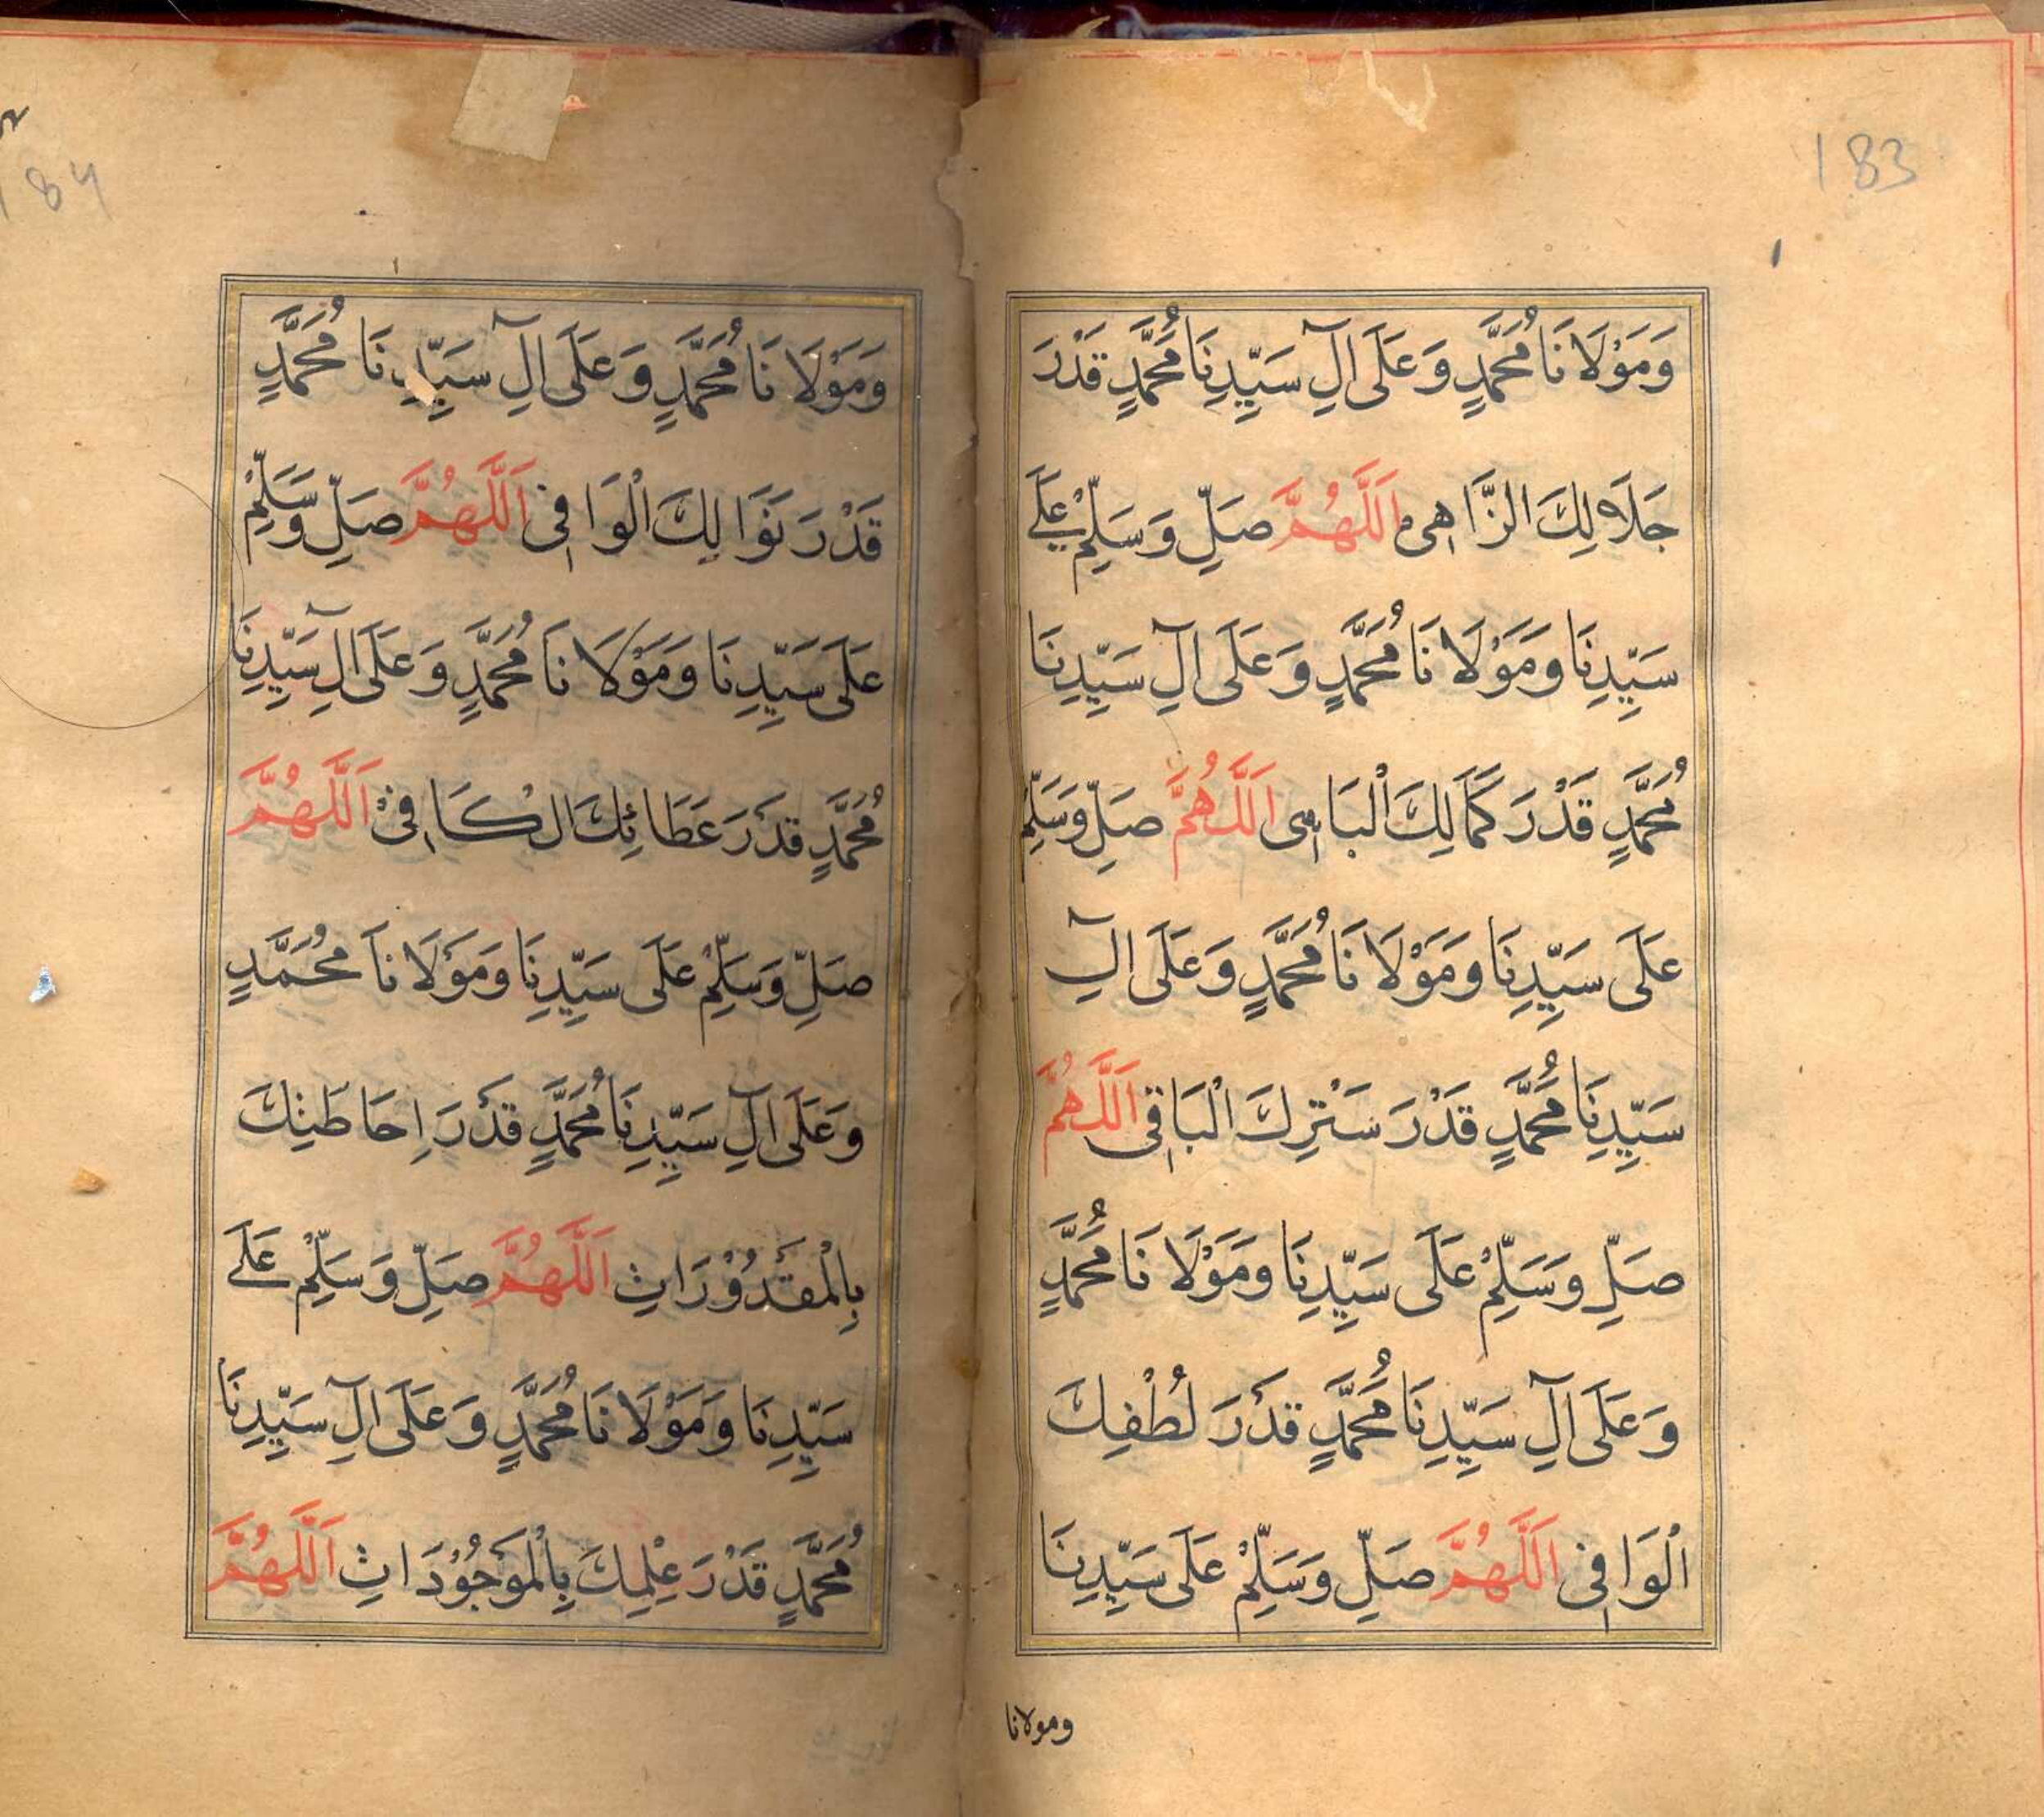 183
وَمَوْلَانَا مُحَمَّدٍ وَعَلَى آلِ سَيِّدِنَا مُحَمَّدٍ قَدْرَ
جَلَالِكَ الزَّاهِى اَللَّهُمَّ صَلِّ وَسَلِّمْ عَلَى
سَيِّدِنَا وَمَوْلَانَا مُحَمَّدٍ وَعَلَى آلِ سَيِّدِنَا
مُحَمَّدٍ قَدْرَ كَمَالِكَ الْبَاهِى اَللَّهُمَّ صَلِّ وَسَلِّمْ
عَلَى سَيِّدِنَا وَمَوْلَانَا مُحَمَّدٍ وَعَلَى آلِ
سَيِّدِنَا مُحَمَّدٍ قَدْرَ سَتْرِكَ الْبَاقِى اَللَّهُمَّ
صَلِّ وَسَلِّمْ عَلَى سَيِّدِنَا وَمَوْلَانَا مُحَمَّدٍ
وَعَلَى آلِ سَيِّدِنَا مُحَمَّدٍ قَدْرَ لُطْفِكَ
الْوَافِى اَللَّهُمَّ صَلِّ وَسَلِّمْ عَلَى سَيِّدِنَا
ومولانا
184
وَمَوْلَانَا مُحَمَّدٍ وَعَلَى آلِ سَيِّدِنَا مُحَمَّدٍ
قَدْرَ نَوَالِكَ الْوَافِى اَللَّهُمَّ صَلِّ وَسَلِّمْ
عَلَى سَيِّدِنَا وَمَوْلَانَا مُحَمَّدٍ وَعَلَى آلِ سَيِّدِنَا
مُحَمَّدٍ قَدْرَ عَطَائِكَ الْكَافِى اَللَّهُمَّ
صَلِّ وَسَلِّمْ عَلَى سَيِّدِنَا وَمَوْلَانَا مُحَمَّدٍ
وَعَلَى آلِ سَيِّدِنَا مُحَمَّدٍ قَدْرَ اِحَاطَتِكَ
بِالْمَقْدُوْرَاتِ اَللَّهُمَّ صَلِّ وَسَلِّمْ عَلَى
سَيِّدِنَا وَمَوْلَانَا مُحَمَّدٍ وَعَلَى آلِ سَيِّدِنَا
مُحَمَّدٍ قَدْرَ عِلْمِكَ بِالْمَوْجُوْدَاتِ اَللَّهُمَّ